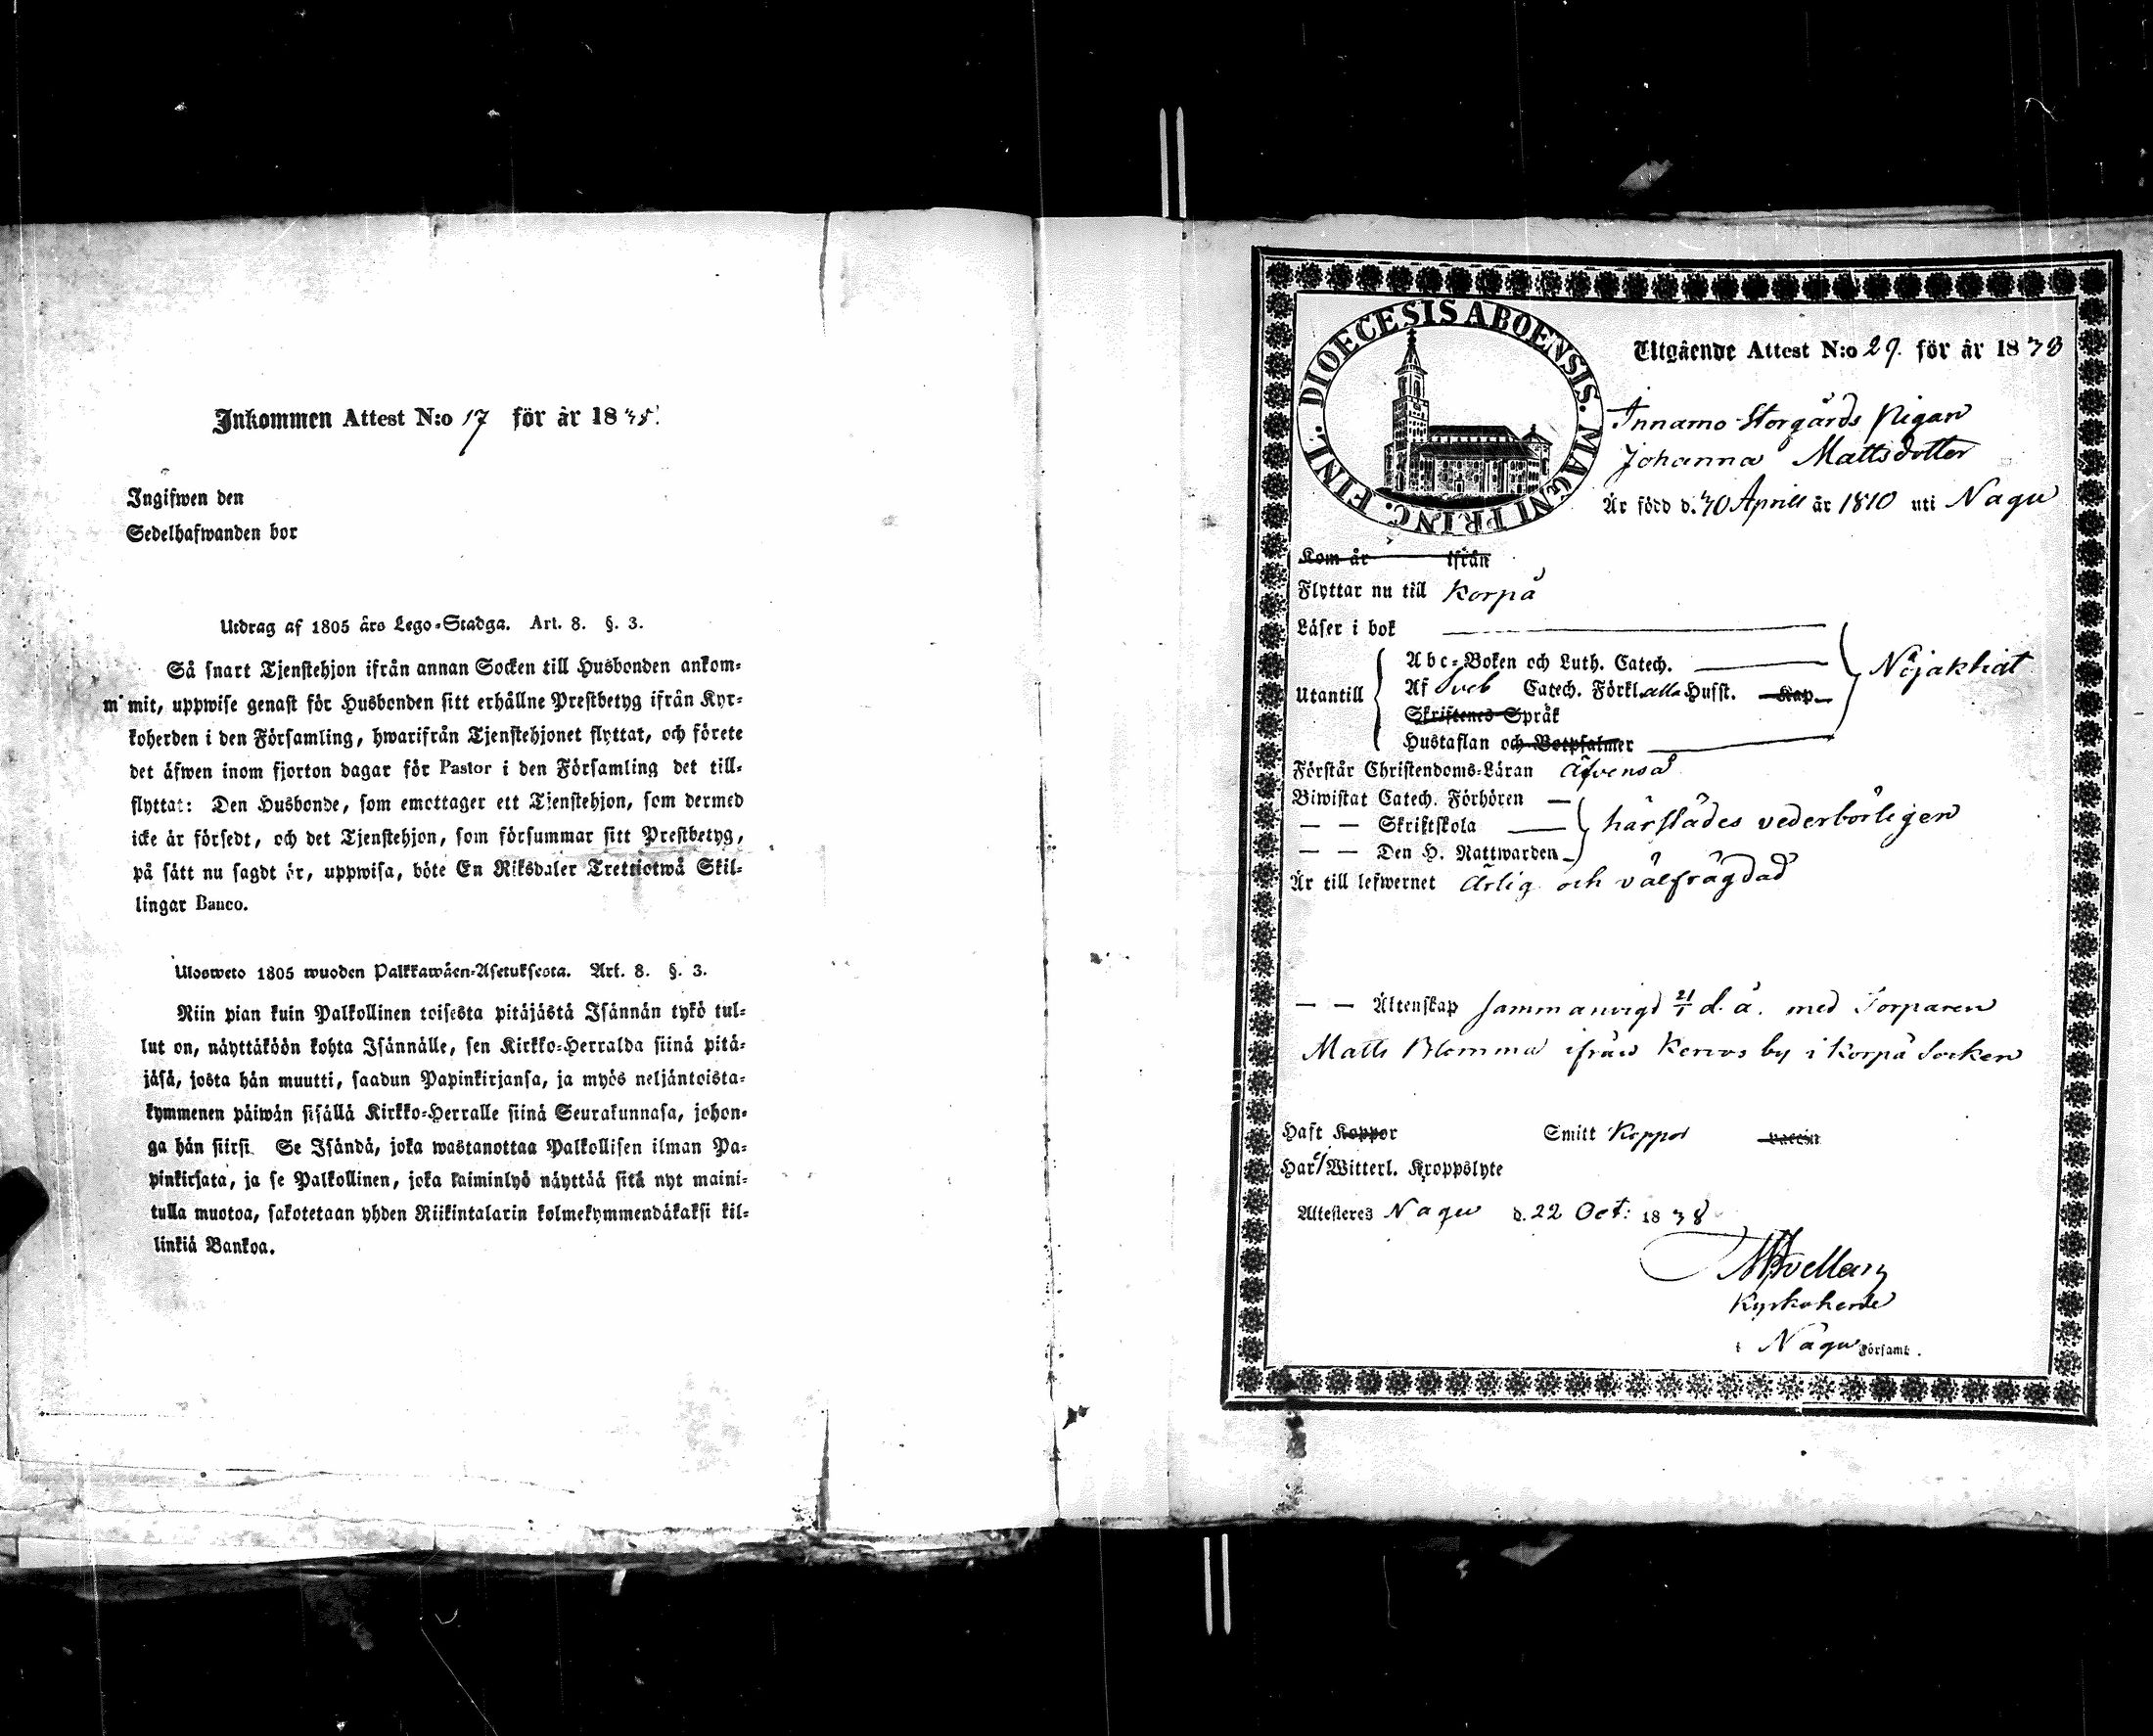 Inkommen Attest N:o 17 för år 1838.
Ingifwen den
Sedelhafwanden bor
Utdrag af 1805 års Lego-Stadga. Art. 8. §. 3.
Så snart Tjenstehjon ifrån annan Socken till Husbonden ankom-
m mit, uppwise genast för Husbonden sitt erhållne Prestbetyg ifrån Kyr-
koherden i den Församling, hwarifrån Tjenstehjonet flyttat, och förete
det äfwen inom fjorton dagar för Pastor i den Församling det till-
flyttat: Den Husbonde, som emottager ett Tjenstehjon, som dermed
icke är försedt, och det Tjenstehjon, som försummar sitt Prestbetyg,
på sätt nu sagdt är, uppwisa, böte En Riksdaler Trettiotwå Skil-
lingar Banco.
Ulosweto 1805 wuoden Palkkawäen-Asetuksesta. Art. 8. §. 3.
Niin pian kuin Palkollinen toisesta pitäjästä Isännän tykö tul-
lut on, näyttäköön kohta Isännälle, sen Kirkko-Herralda siinä pitä-
jäsä, josta hän muutti, saadun Papinkirjansa, ja myös neljäntoista-
kymmenen päiwän sisällä Kirkko-Herralle siinä Seurakunnasa, johon-
ga hän siirsi. Se Isändä, joka wastanottaa Palkollisen ilman Pa-
pinkirjata, ja se Palkollinen, joka laiminlyö näyttää sitä nyt maini-
tulla muotoa, sakotetaan yhden Riikintalarin kolmekymmendäkaksi kil-
linkiä Bankoa.
DIOECESIS ABOENSIS. MAGNI PRINC. FINL.
Utgående Attest N:o 29. för år 1838
Innamo Storgårds Pigan
Johanna Mattsdotter
Är född d. 30 Aprill år 1810 uti Nagu
Kom år ifrån
Flyttar nu till Korpå
Läser i bok
Abc-Boken och Luth. Catech.
Nöjaktigt
Utantill
Af Sveb Catech. Förkl. alla Husst. Kap.
Skriftenes Språk
Hustaflan och Botpsalmer
Förstår Christendoms-Läran äfvenså
Biwistat Catech. Förhören
— — Skriftskola
härstädes vederbörligen
— — Den H. Nattwarden
Är till lefwernet ärlig och välfrägdad
— — Äktenskap Sammanvigd 21/1 d. å. med Torparen
Matts Blomma ifrån Kervos by i Korpå Socken
Haft Koppor Smitt Koppor Vaccin
Har ej Witterl. Kroppslyte
Attesteres Nagu d. 22 Oct: 1838
Kyrkoherde
i Nagu Församl.